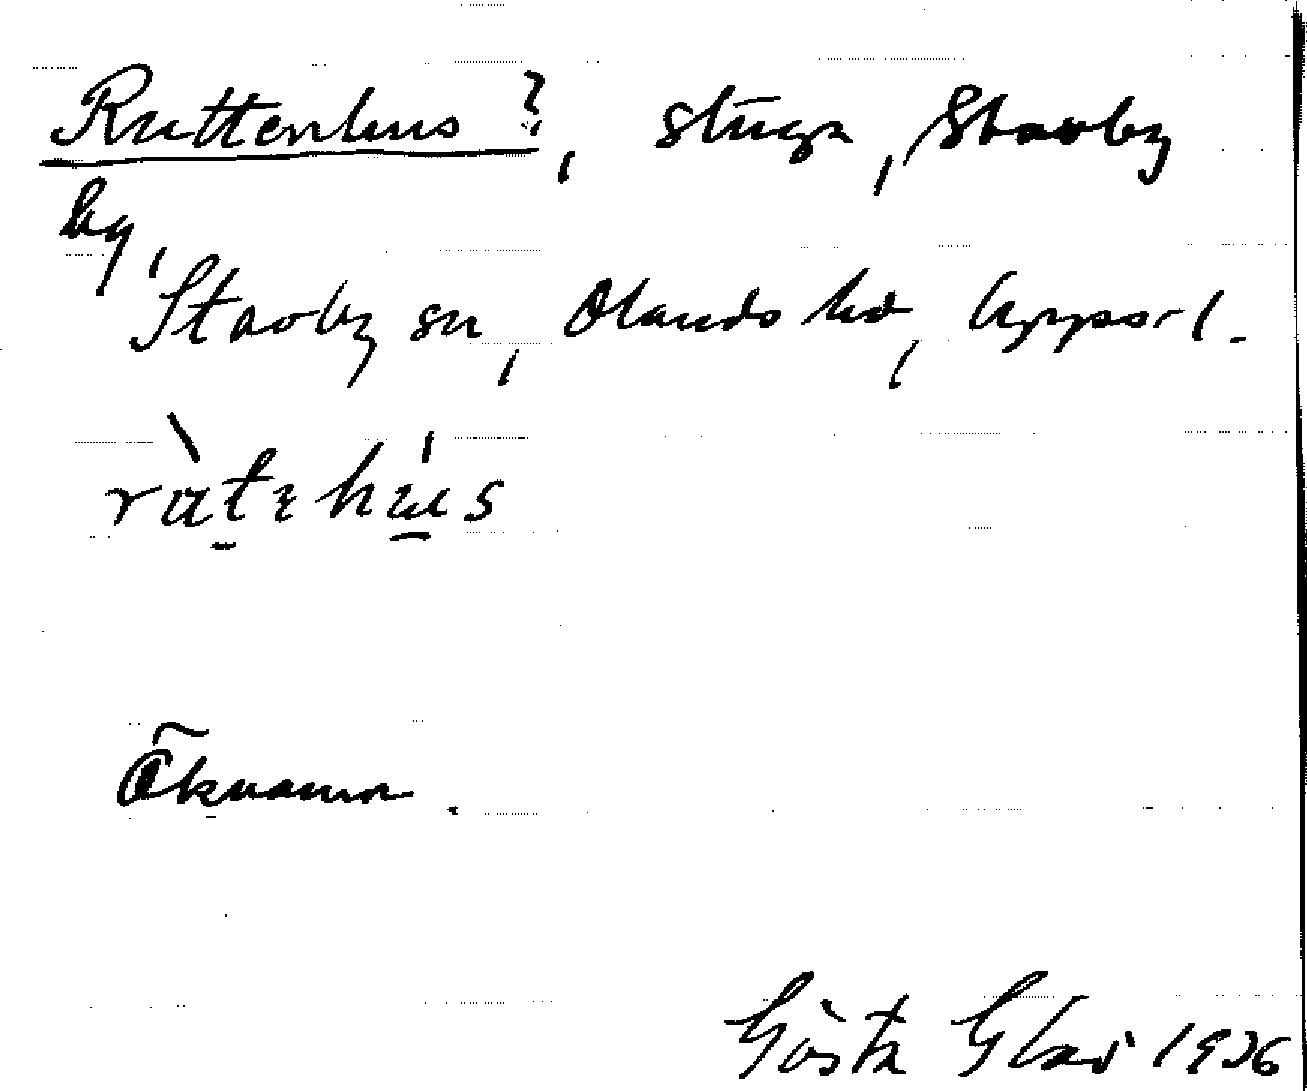 Ruttenhus?, stuga, Stavby
by,
Stavby sn, Olands hd, Uppsal l.
ràtɛhu̍s
Öknamn.
Gösta 1936